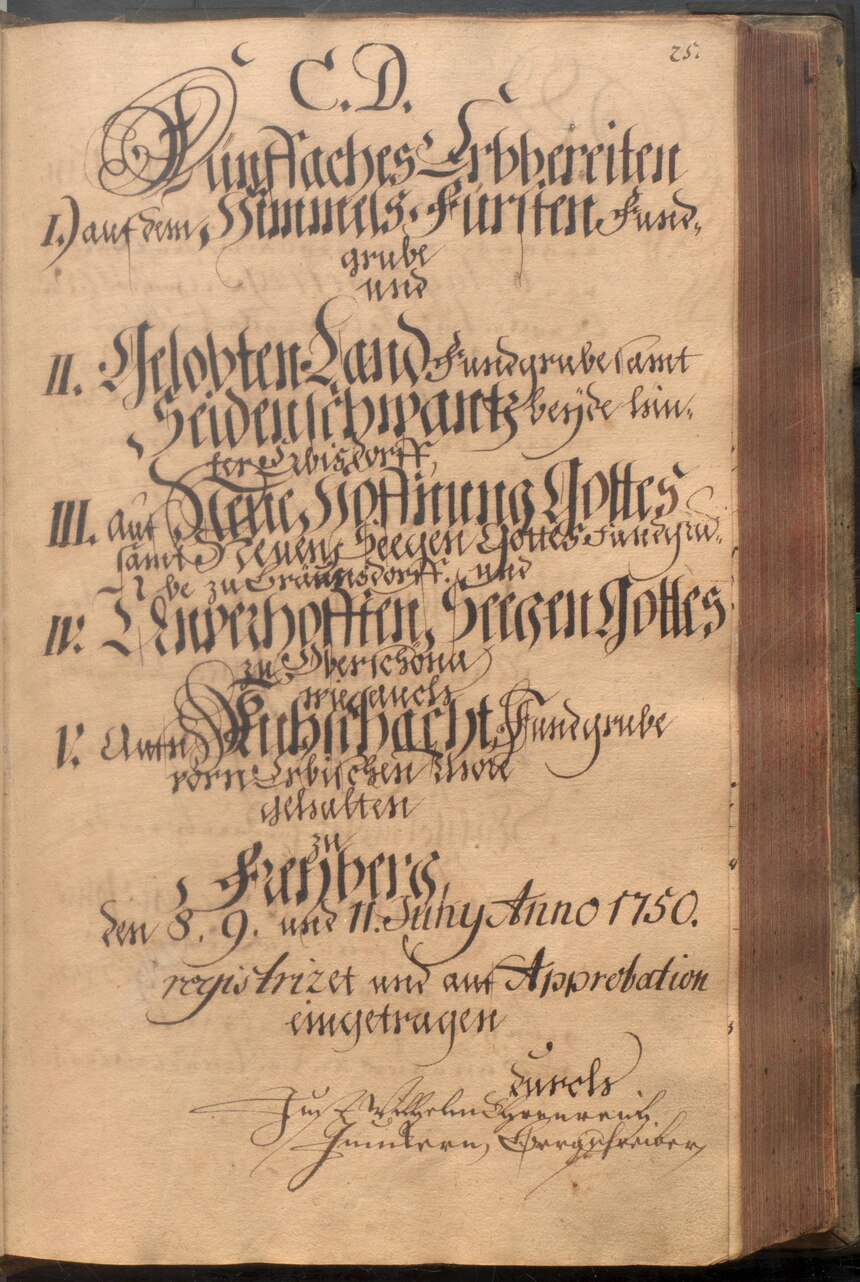 25.
C. D.
Fünffaches Erbbereiten
I.) auf dem Himmels-Fürsten Fund-
grube
und
II. Gelobten-Land Fundgrube samt
Seidenschwantz beÿde hin-
ter Erbisdorff,
III. Auf Neue Hoffnung Gottes
samt Neuen Seegen Gottes Fundgru-
be zu Bräunsdorff. und
IV. Unverhofften Seegen Gottes
zu Oberschöna
wie auch
V. Aufn Kuhschacht Fundgrube
vorn Erbischen Thore
gehalten
zu
Freÿberg,
den 8. 9. und 11. Juny Anno 1750.
registrizet und auf Approbation
eingetragen
durch
Wilhelm Ehrenreich
Junckern, Bergschreiber